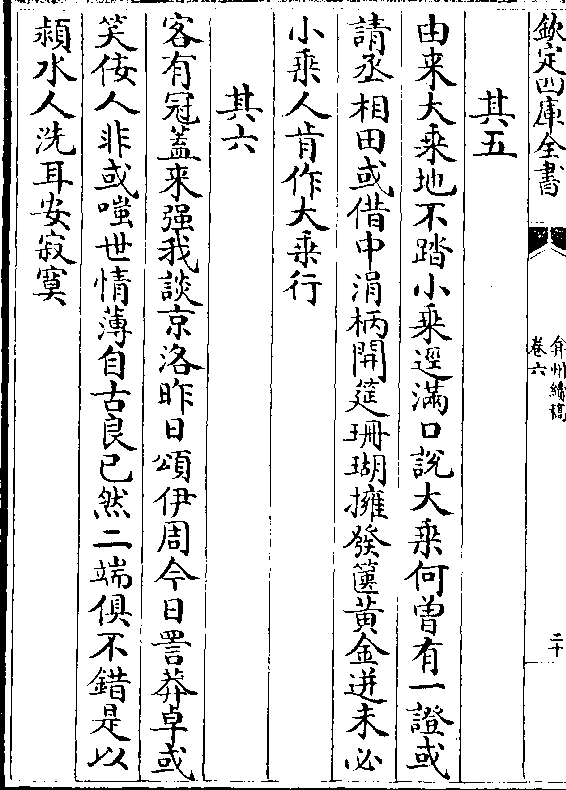 欽定四庫全書
弇州續稿
卷六
二十
其五
由来大乘地不踏小乘逕滿口說大乘何曾有一證或
請丞相田或借中涓柄開筵珊瑚擁發篋黃金迸未必
小乘人肯作大乘行
其六
客有冠蓋来强我談京洛昨日頌伊周今日詈莽卓或
笑倿人非或嗤世情薄自古良已然二端俱不錯是以
頳水人洗耳安寂寞